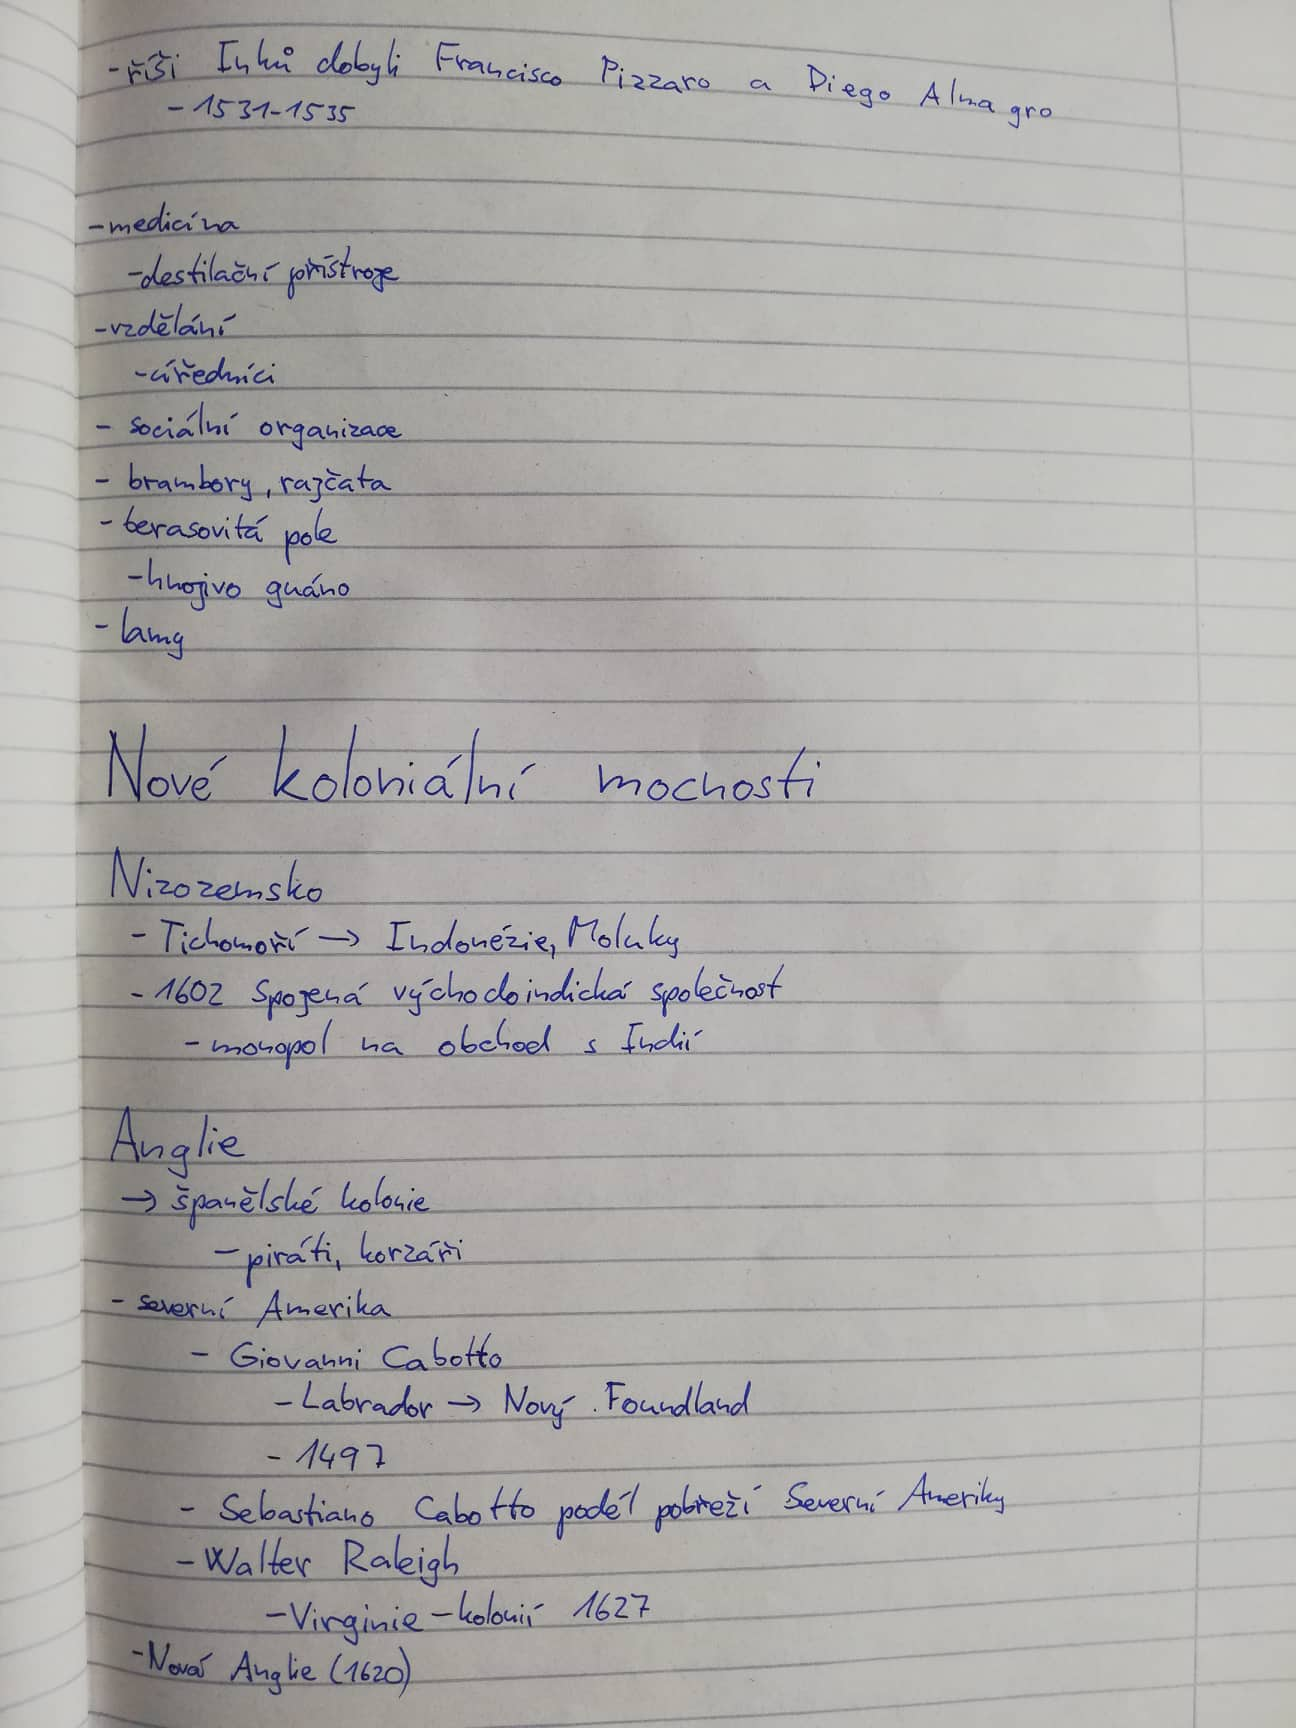 - říši Inků dobyli Francisco Pizzaro a Diego Almagro
- 1531-1535
- medicína
- destilační přístroje
- vzdělání
- úředníci
- sociální organizace
- brambory, rajčata
- terasovitá pole
- hnojivo guáno
- lamy
Nové koloniální mocnosti
Nizozemsko
- Tichomoří → Indonézie, Moluky
- 1602 Spojená východoindická společnost
- monopol na obchod s Indií
Anglie
→ španělské kolonie
- piráti, korzáři
- severní Amerika
- Giovanni Cabotto
- Labrador → Nový Foundland
- 1497
- Sebastiano Cabotto podél pobřeží Severní Ameriky
- Walter Raleigh
- Virginie - kolonií 1627
- Nová Anglie (1620)